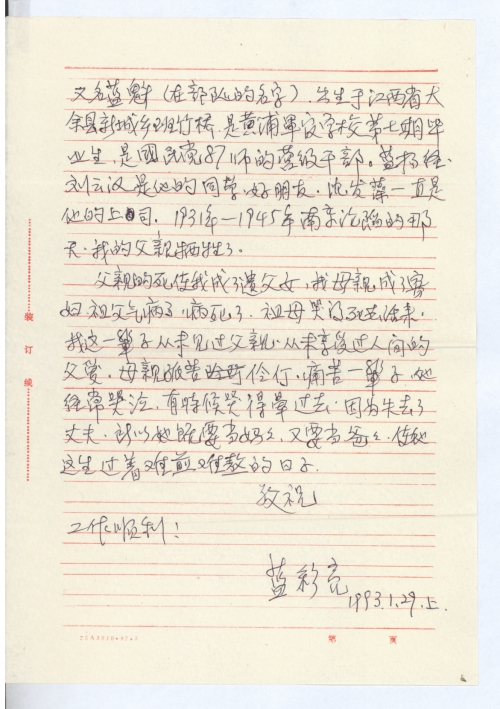 又名蓝魁（在部队的名字）.出生于江西省大
余县新城乡班竹桥.是黄浦军官学校第七期毕
业生.是國民党87师的营级干部.蓝杨
刘云汉是他的同学好朋友.沈发藻一直是
他的上司.1931年—1945年南京沦陷的那
天.我的父亲牺牲了.
父亲的死使我成了遗父女，我母亲成了寡
妇.祖父气病了.病死了.祖母哭得死去活来.
我这一辈子从未见过父亲.从未享受过人间的
父爱.母亲孤苦伶仃，痛苦一辈子.她
经常哭泣，有時候哭得晕过去.因为失去了
丈夫.所以她既要当妈妈，又要当爸爸.使她
这生过着难煎难熬的日子.
敬祝
工作顺利！
蓝彩亮
1993.1.29.上.
装订线
第 页